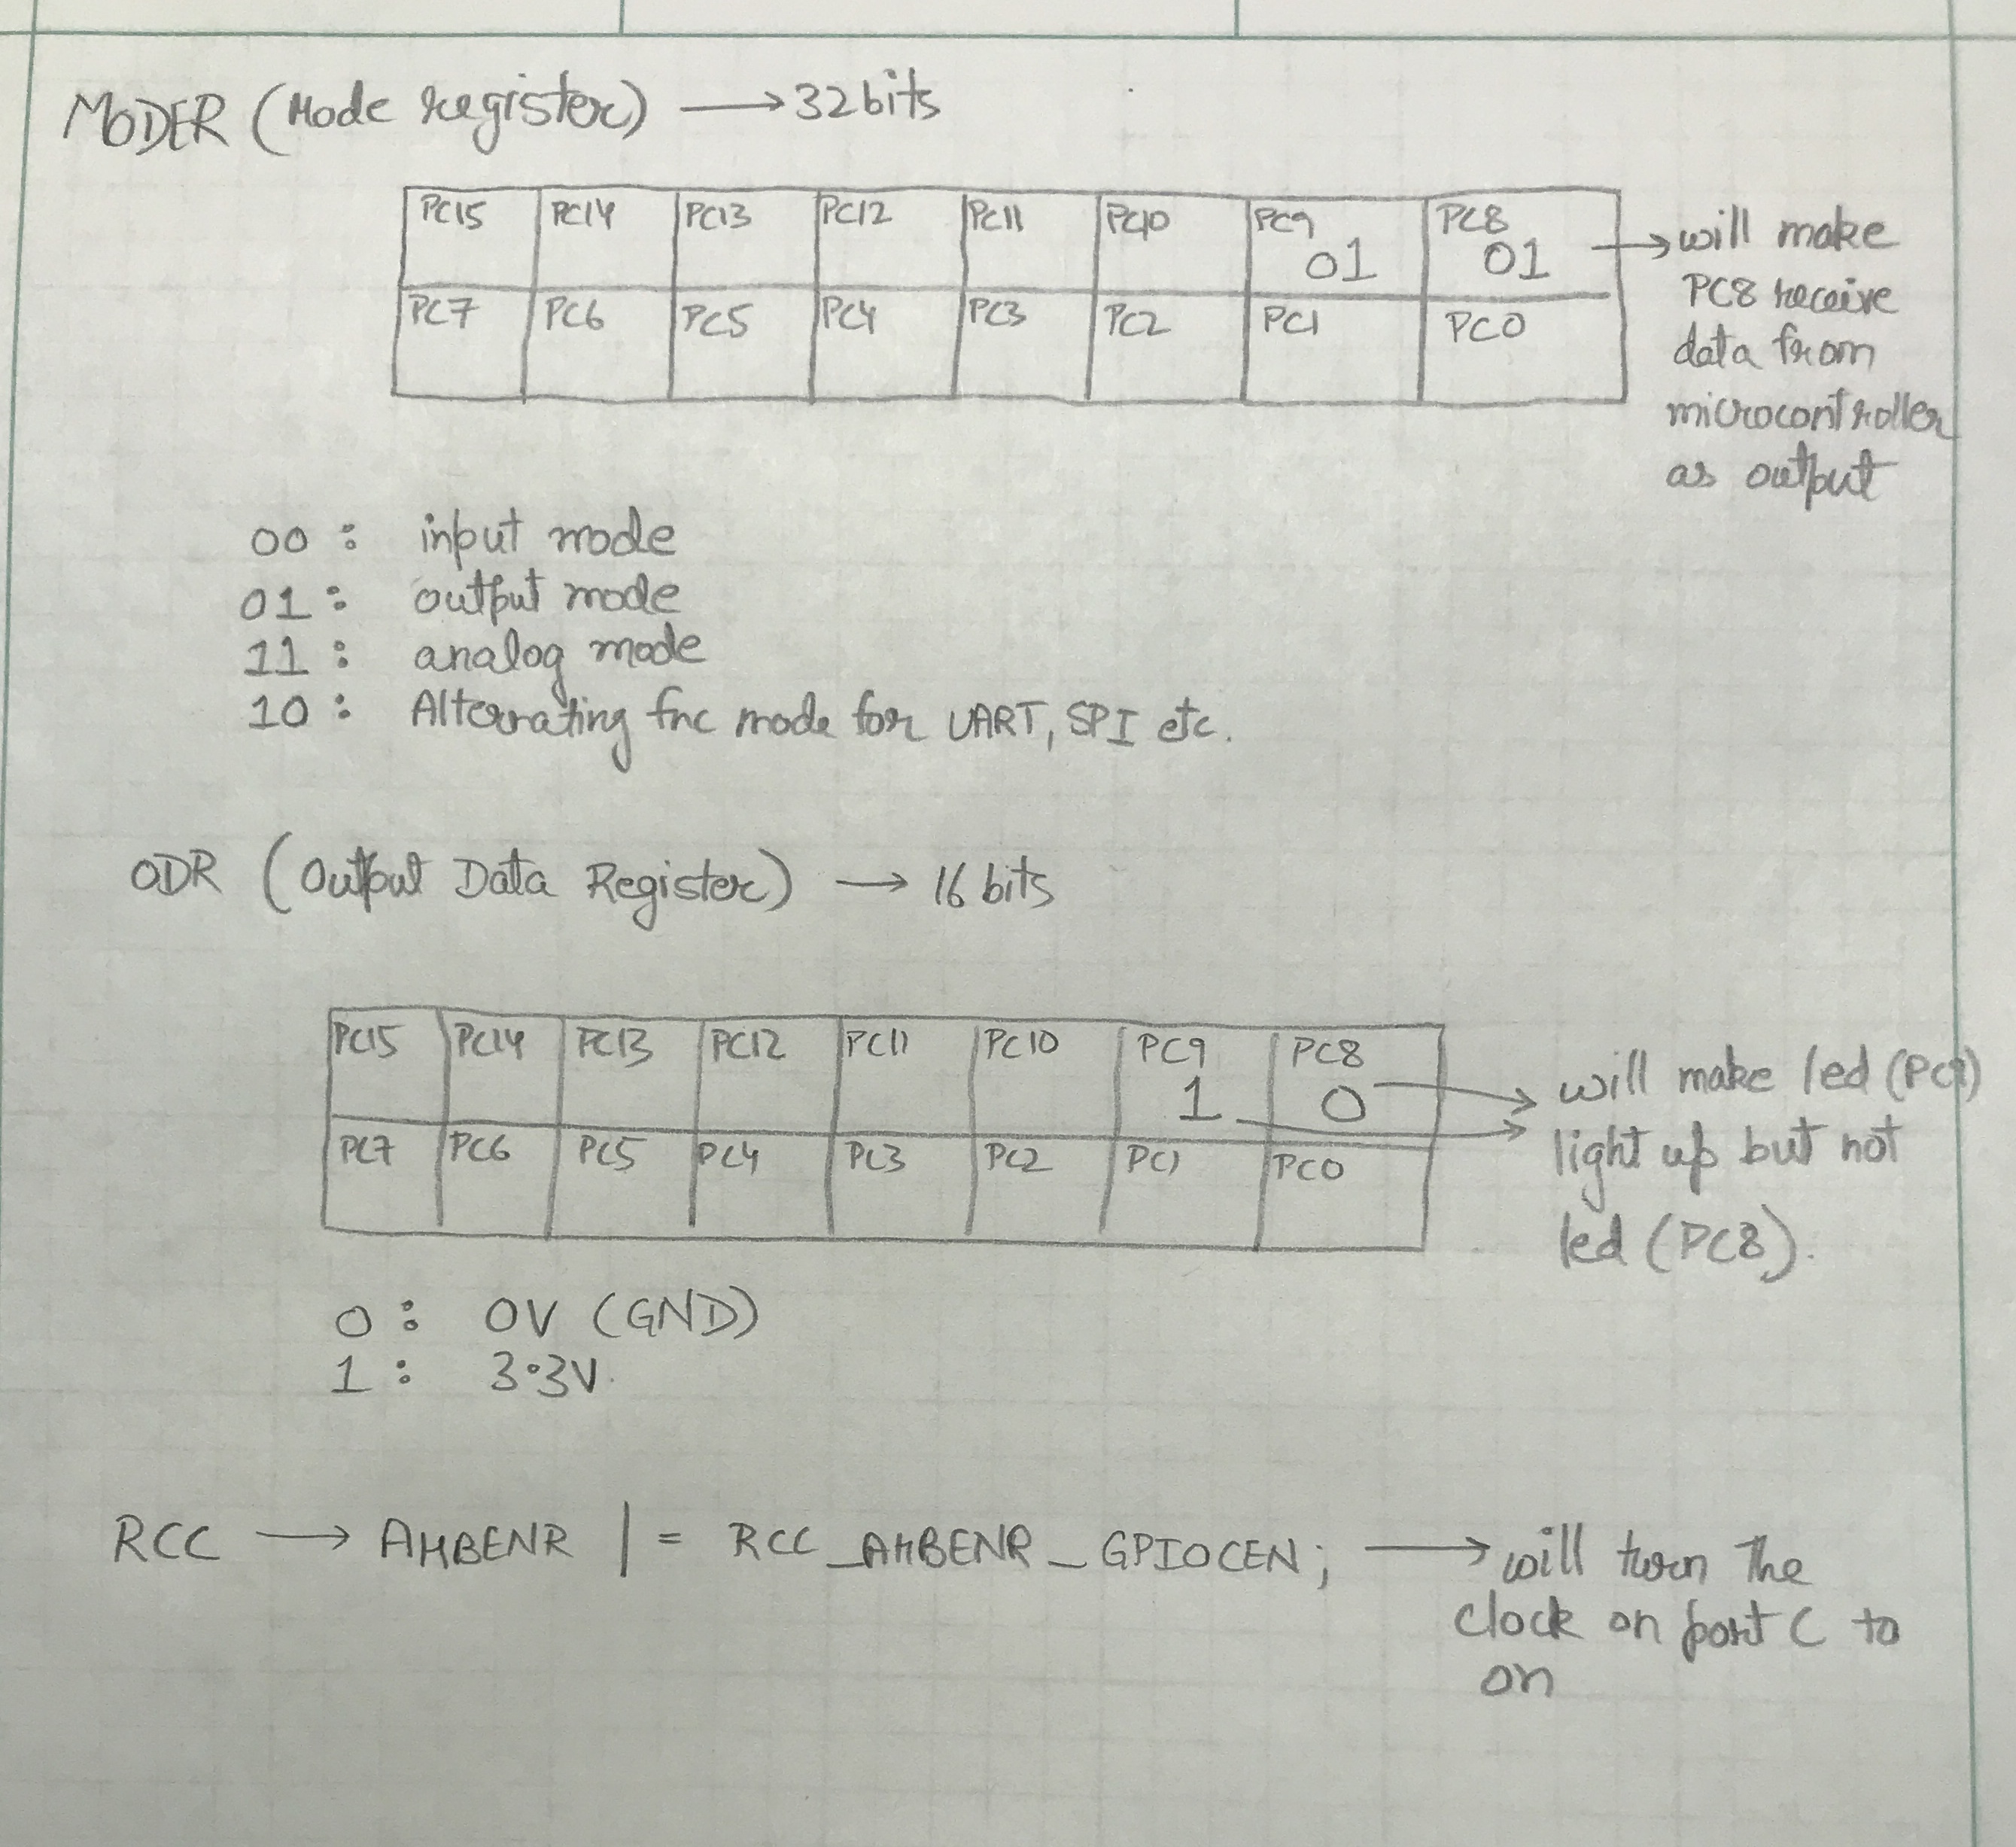 MODER (Mode register) → 32 bits
PC15 PC14 PC13 PC12 PC11 PC10 PC9 PC8
01 01
PC7 PC6 PC5 PC4 PC3 PC2 PC1 PC0
→ will make
PC8 receive
data from
microcontroller
as output
00 : input mode
01 : output mode
11 : analog mode
10 : Alternating fnc mode for UART, SPI etc.
ODR (Output Data Register) → 16 bits
PC15 PC14 PC13 PC12 PC11 PC10 PC9 PC8
1 0
PC7 PC6 PC5 PC4 PC3 PC2 PC1 PC0
will make led (PC9)
light up but not
led (PC8).
0 : 0V (GND)
1 : 3.3V.
RCC → AHBENR |= RCC_AHBENR_GPIOCEN; → will turn the
clock on port C to
on